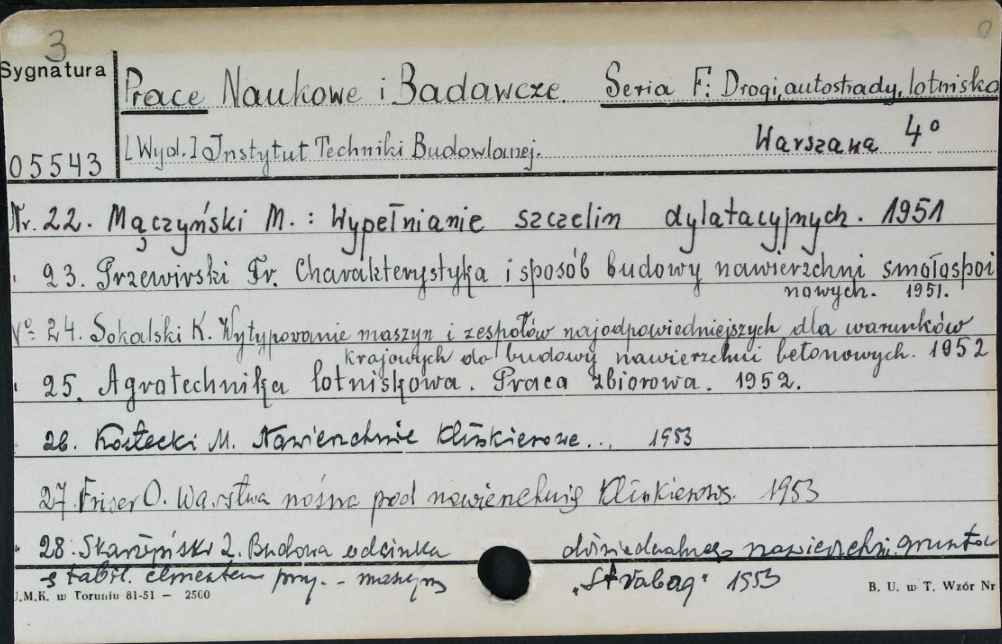 3
0
Sygnatura
Prace Naukowe i Badawcze. Seria F: Drogi, autostrady, lotniska
05543
[Wyd.] Instytut Techniki Budowlanej. Warszawa 4°
Nr. 22. Mączyński M. : Wypełnianie szczelin dylatacyjnych. 1951
" 23. Przewirski Fr. Charakterystyka i sposób budowy nawierzchni smołospoi
nowych. 1951.
No 24. Sokalski K. Wytypowanie maszyn i zespołów najodpowiedniejszych dla warunków
krajowych do budowy nawierzchni betonowych. 1952
" 25. Agrotechnika lotniskowa. Praca zbiorowa. 1952.
26. Kostecki M. Nawierzchnie klinkierowe... 1953
27. Friser O. Warstwa nośna pod nawierzchnię klinkierową. 1953
" 28. Skarżyński Z. Budowa odcinka doświadczalnego nawierzchni grunto
stabil. cementem przy. - maszyny "Strabag" 1953
U.M.K. w Toruniu 81-51 — 2500
B. U. w T. Wzór Nr